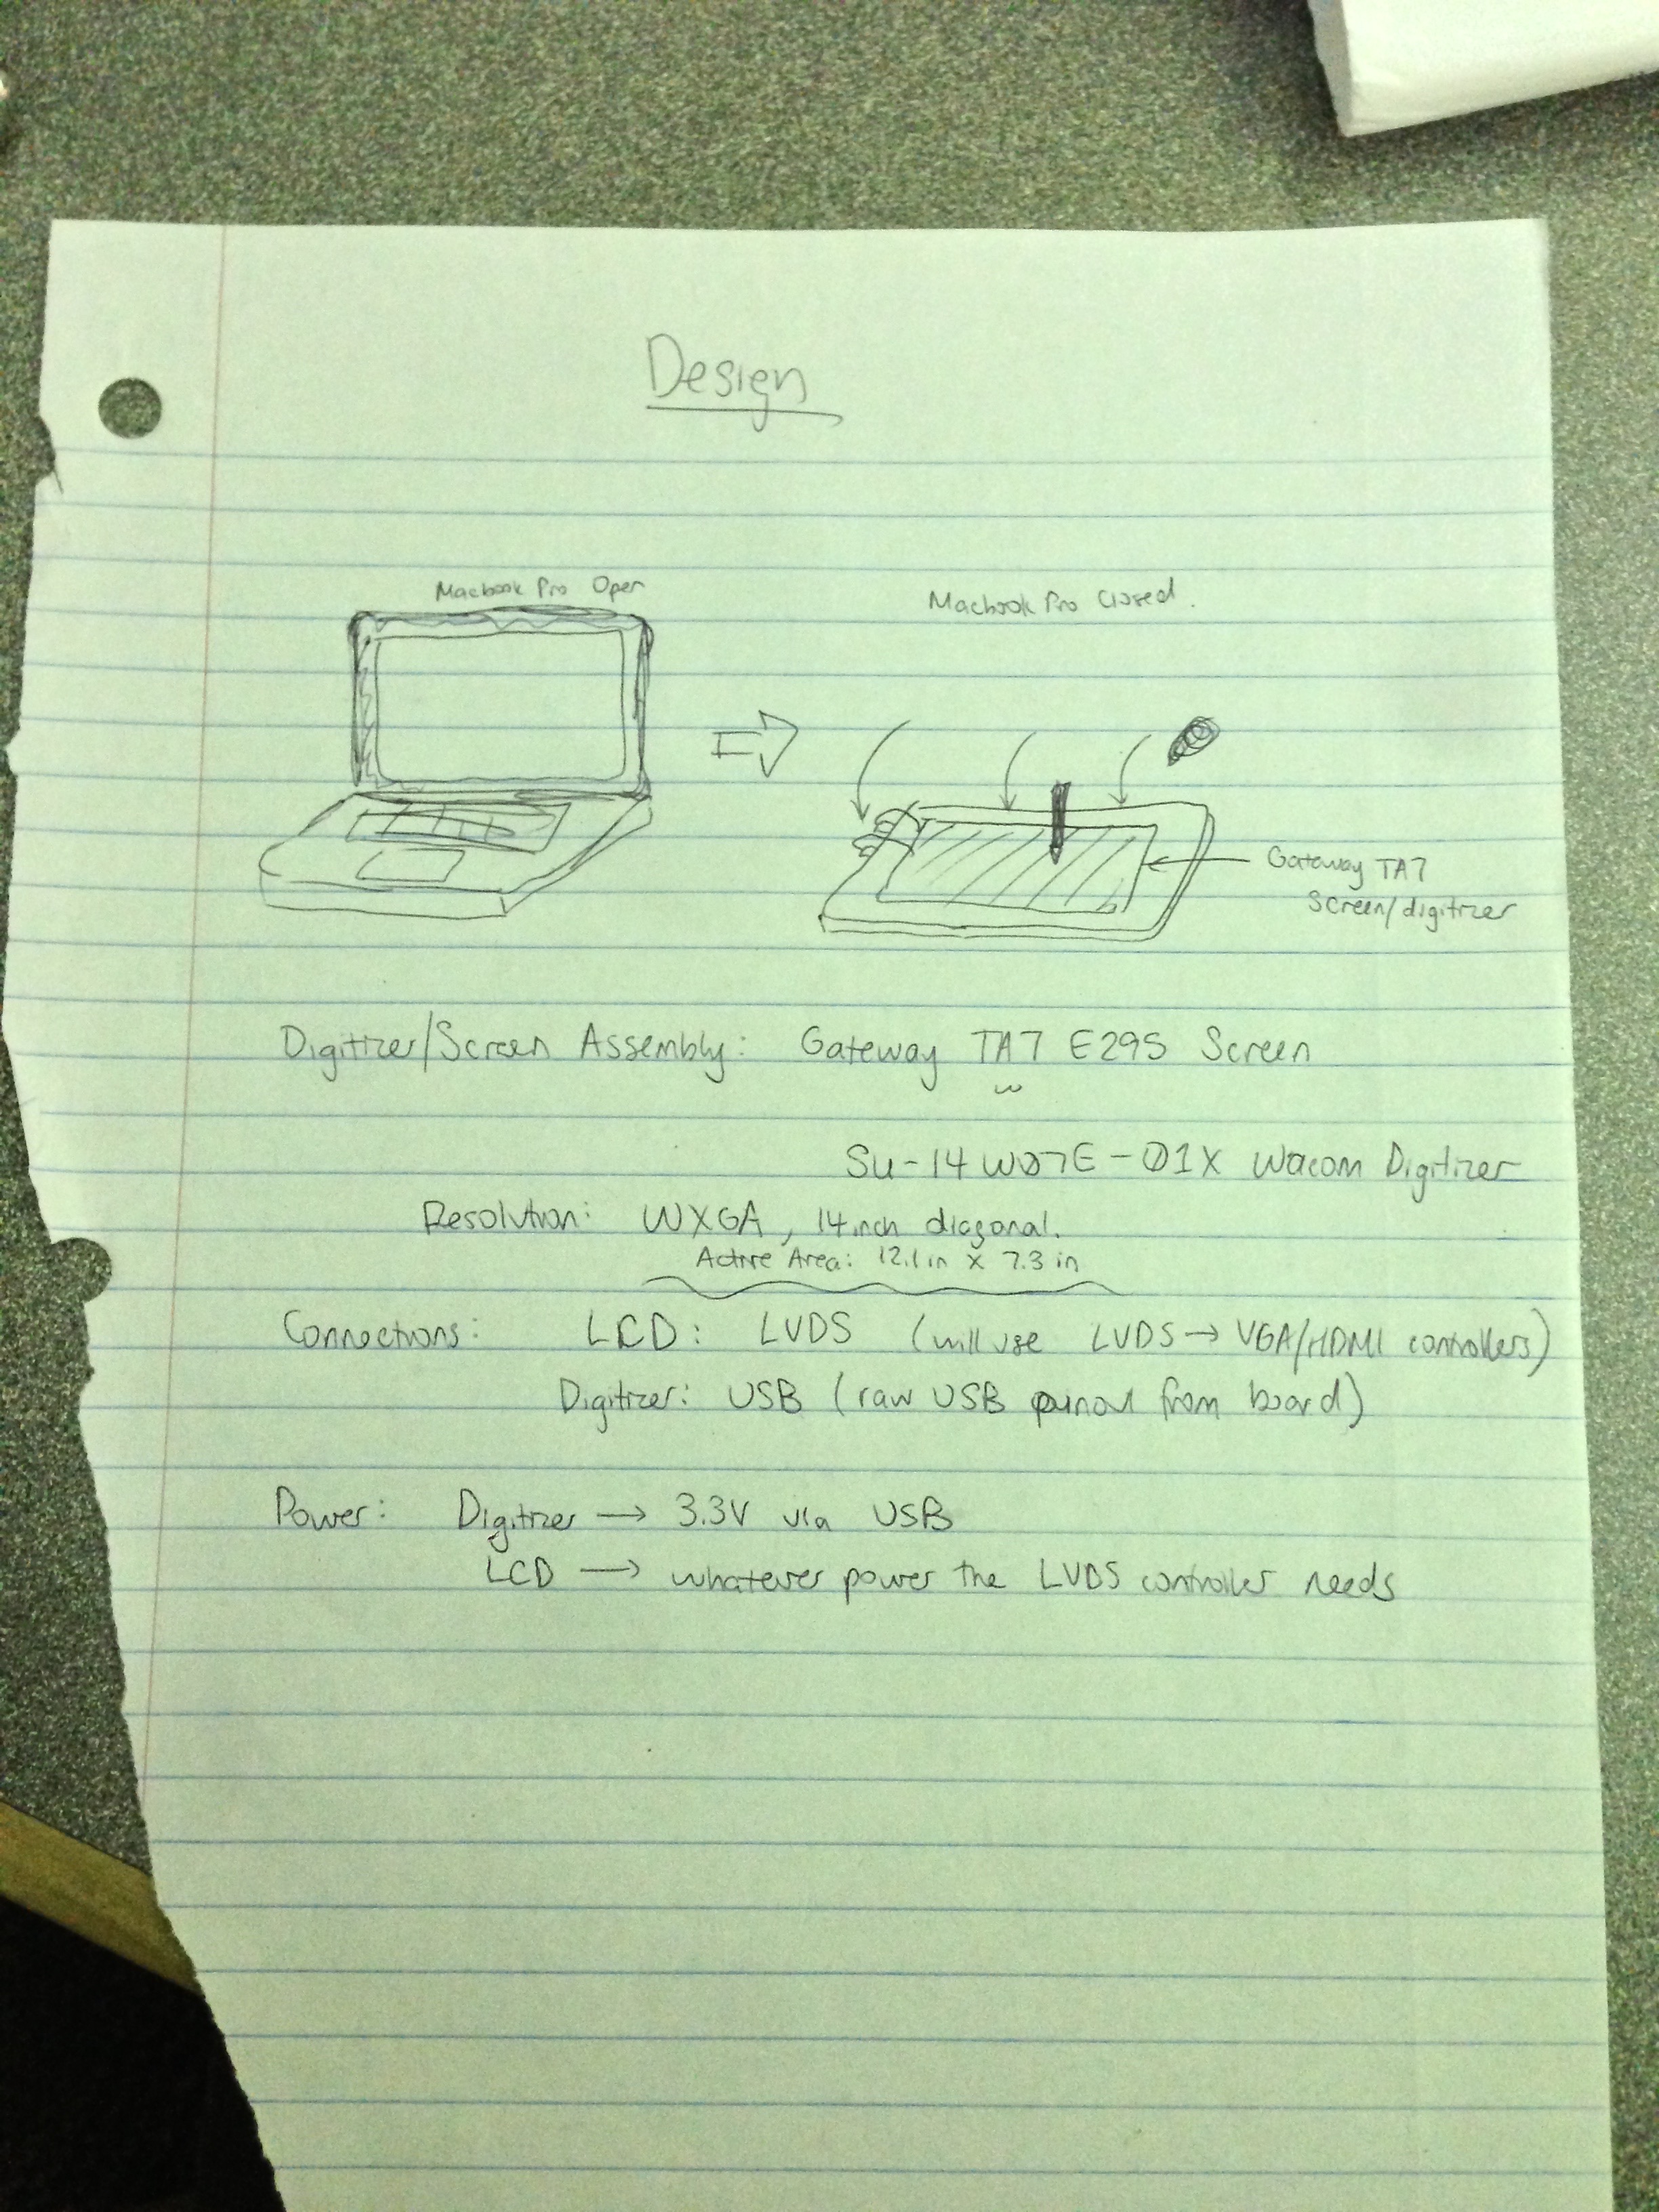 Design
Macbook Pro Open
Macbook Pro Closed.
Gateway TA7
Screen/digitizer
Digitizer/Screen Assembly: Gateway TA7 E295 Screen
Su-14W07E-01X Wacom Digitizer
Resolution: WXGA, 14 inch diagonal.
Active Area: 12.1 in x 7.3 in
Connections: LCD: LVDS (will use LVDS → VGA/HDMI controllers)
Digitizer: USB (raw USB pinout from board)
Power: Digitizer → 3.3V via USB
LCD → whatever power the LVDS controller needs